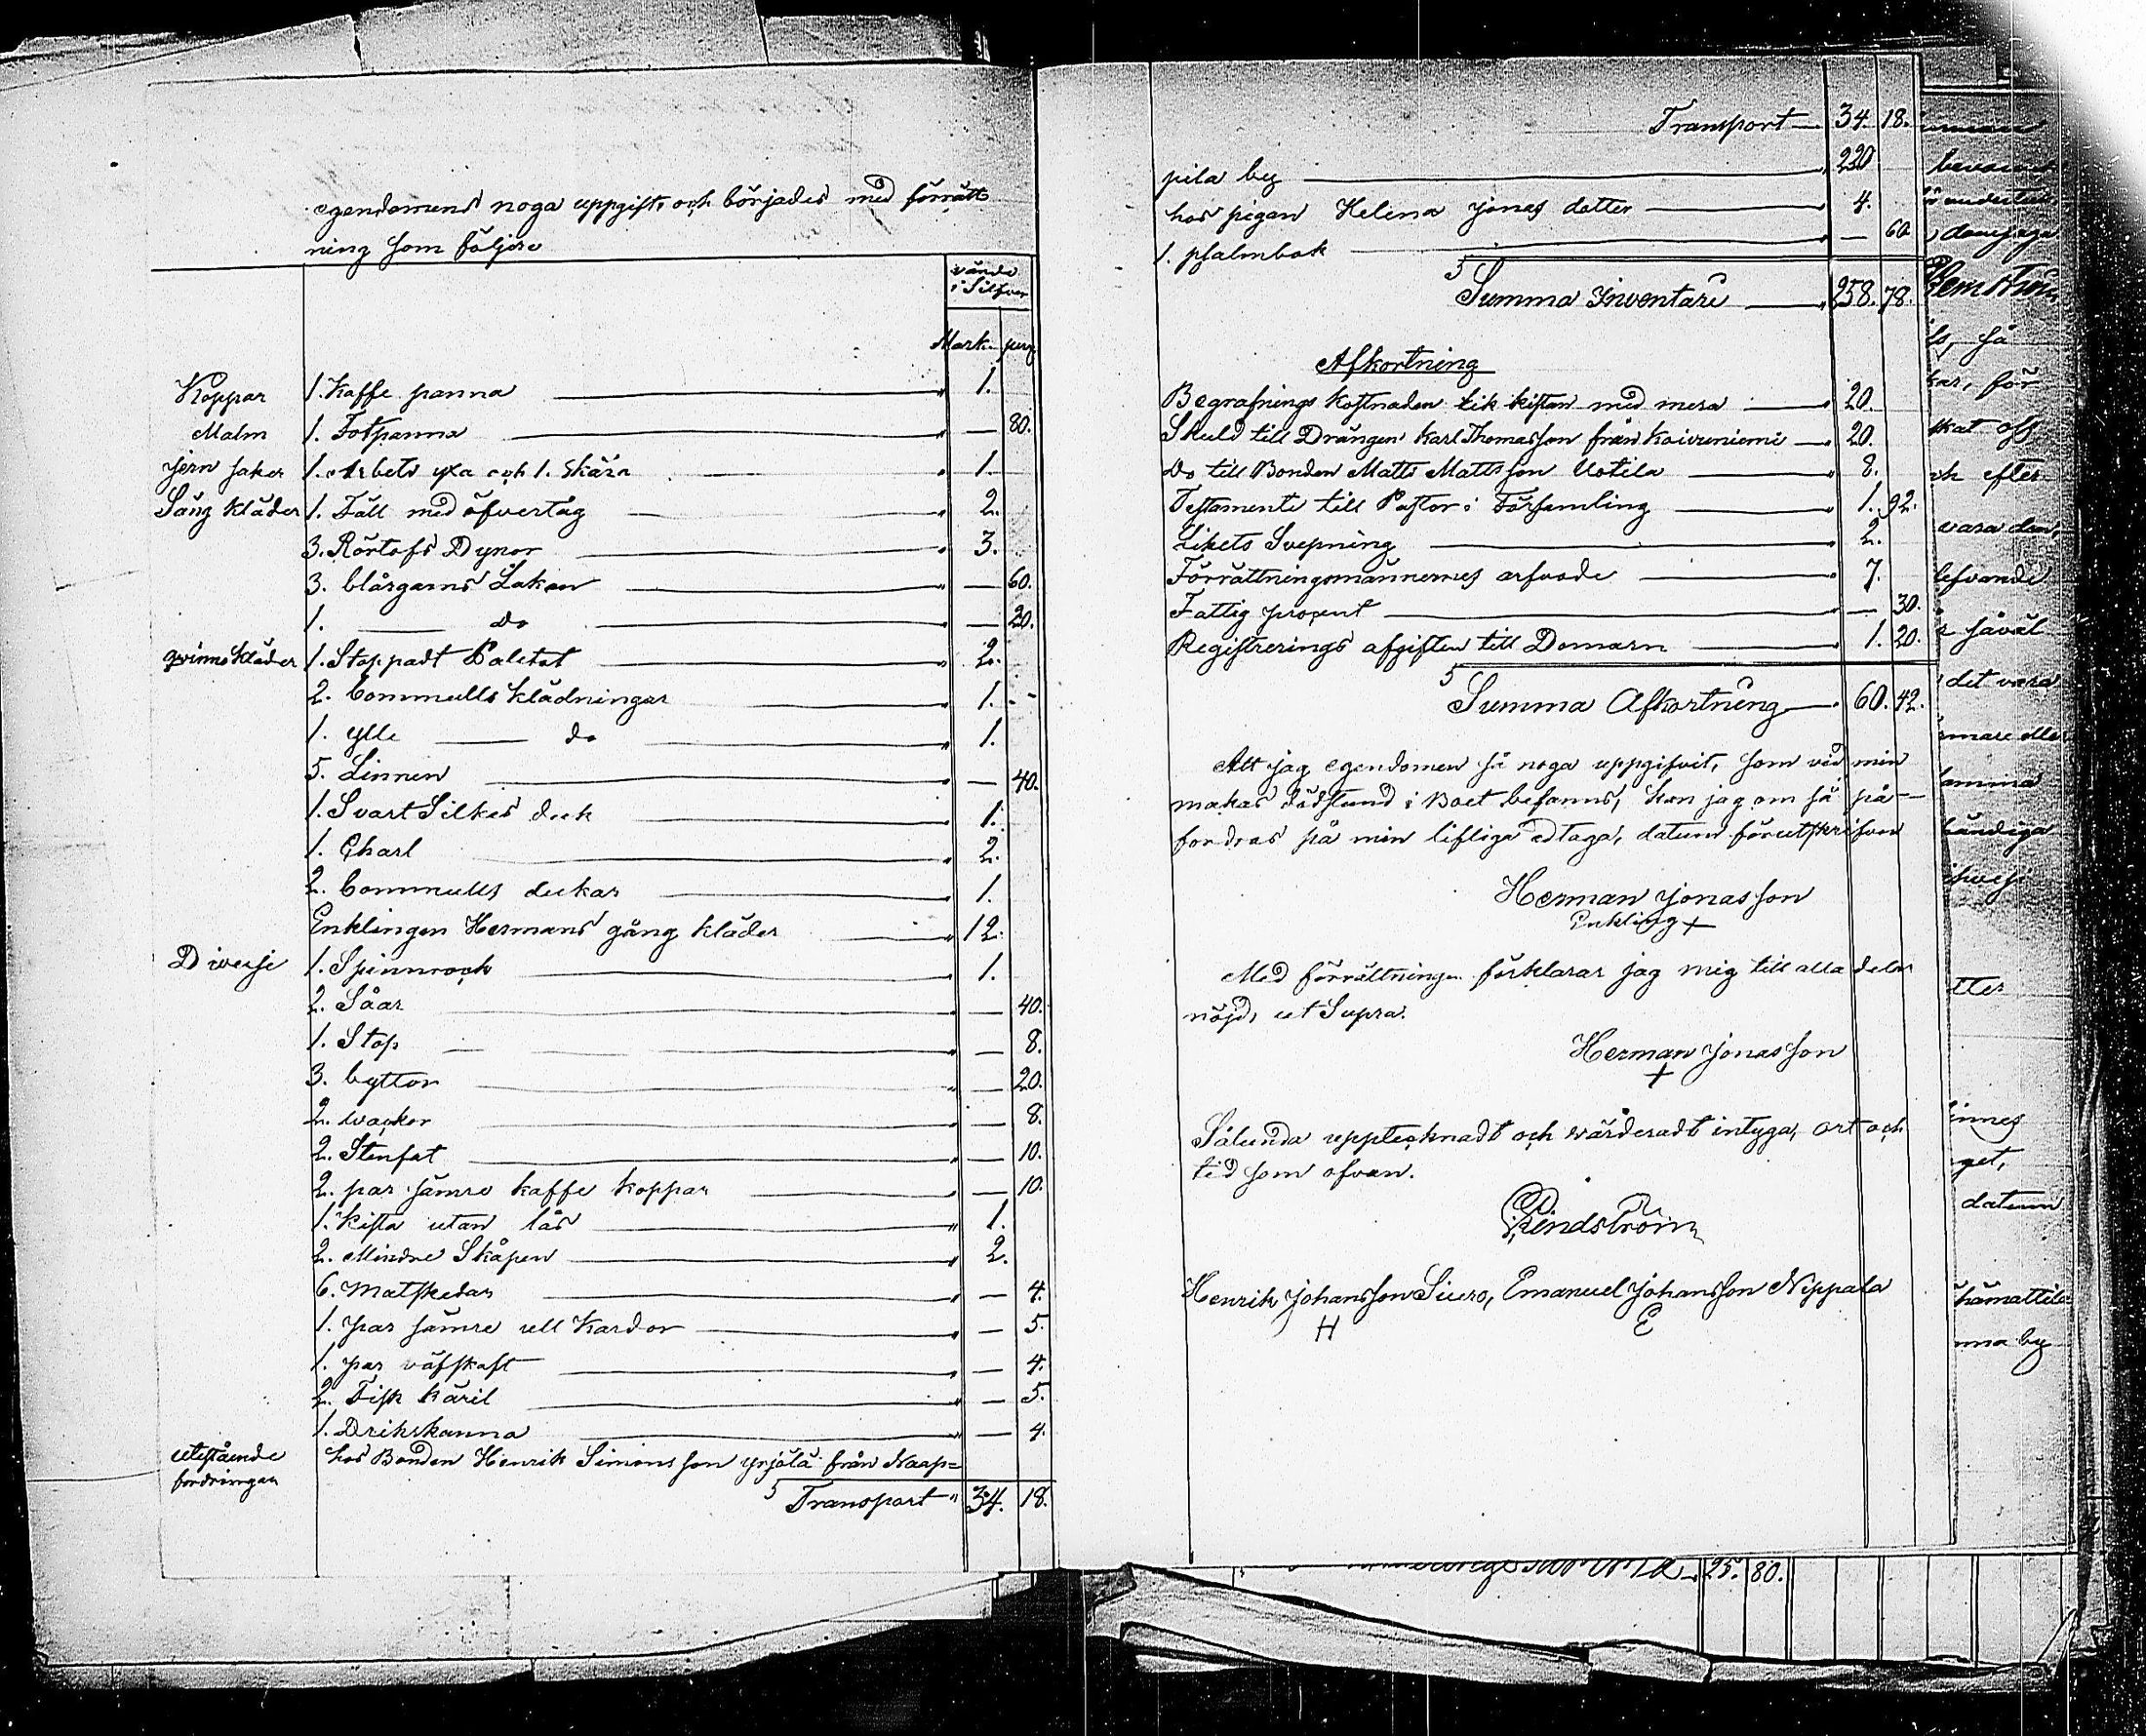 egendomens noga uppgift, och börjades med förrätt
ning som följer
värde
i Silfver
Mark peng
Koppar 1. Kaffe panna 1.
Malm 1. Fotpanna — 80.
Jern saker 1. Arbets yxa och 1. Skära 1.
Säng kläder 1. Fäll med öfvertåg 2.
3. Rörtofs Dynor 3.
3. blårgarns Lakan — 60.
1. do — 20.
qvinns kläder 1. Stoppadt Paletot 2.
2. Bommulls klädningar 1. -
1. ylle do 1.
5. Linnen — 40.
1. Svart Silkes duk 1.
1. Charl 2.
2. Bommulls dukar 1.
Enklingen Hermans gång kläder 12.
Diverse 1. Spinnrock 1.
2. Såar — 40.
1. Stop — 8.
3. byttor — 20.
2. wackor — 8.
2. Stenfat — 10.
2. par sämre kaffe koppar — 10.
1. Kista utan lås 1.
2. Mindre Skåpen 2.
6. Matskedar — 4.
1. par sämre ull kardor — 5.
1. par väfskaft — 4.
2. Fisk käril — 5.
1. Drikskanna — 4.
utestående hos Bonden Henrik Simonsson yrjölä från Naap=
fordringar
Transport 34. 18.
Transport 34. 18.
pila by 220
hos pigan Helena Jonas dotter 4.
1. psalmbok — 60
Summa Inventarii 258. 78.
Afkortning
Begrafnings kostnaden lik kistan med mera 20.
Skuld till Drängen Karl Thomasson från Koivuniemi 20.
Do till Bonden Matts Mattsson Uotila 8.
Testamente till Pastor i Församling 1. 92.
Likets Svepning 2.
Förrättningsmännernes arfvode 7.
Fattig procent — 30.
Registrerings afgiften till Domarn 1. 20.
Summa Afkortning 60. 42.
Att jag egendomen så noga uppgifvit, som vid min
makas dödstund i Boet befanns, kan jag om så på-
fordras på min lifliga ed taga, datum förutskrifven
Herman Jonasson
Enkling +
Med förrättningen förklarar jag mig till alla delar
nöjd, ut Supra.
Herman Jonasson
+
Sålunda upptecknadt och värderadt intyga, ort och
tid som ofvan.
Lindström
Henrik Johansson Siuro, Emanuel Johansson Nippala
H E
bevarat
så
för
efter
vara den,
lefvande
såväl
det vara
datum
25. 80.